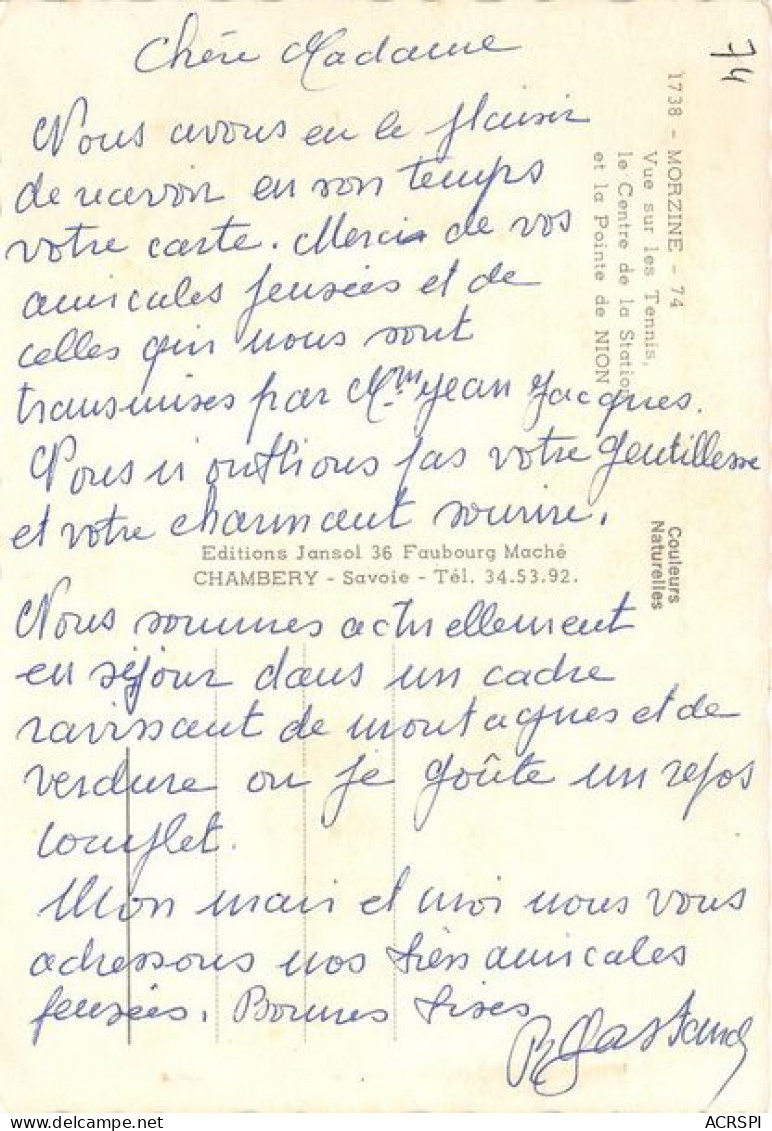 Chère Madame
Nous avons eu le plaisir
de recevoir en son temps
votre carte. Merci de vos
amicales pensées et de
celles qui nous sont
transmises par Mme Jean Jacques.
Nous n'oublions pas votre gentillesse
et votre charmant sourire.
Nous sommes actuellement
en séjour dans un cadre
ravissant de montagnes et de
verdure ou je goûte un repos
complet.
Mon mari et moi nous vous
adressons nos très amicales
pensées. Bonnes bises
74
1738 - MORZINE - 74
Vue sur les Tennis,
le Centre de la Station
et la Pointe de NION
Couleurs
Naturelles
Editions Jansol 36 Faubourg Maché
CHAMBERY - Savoie - Tél. 34.53.92.
ACRSPI